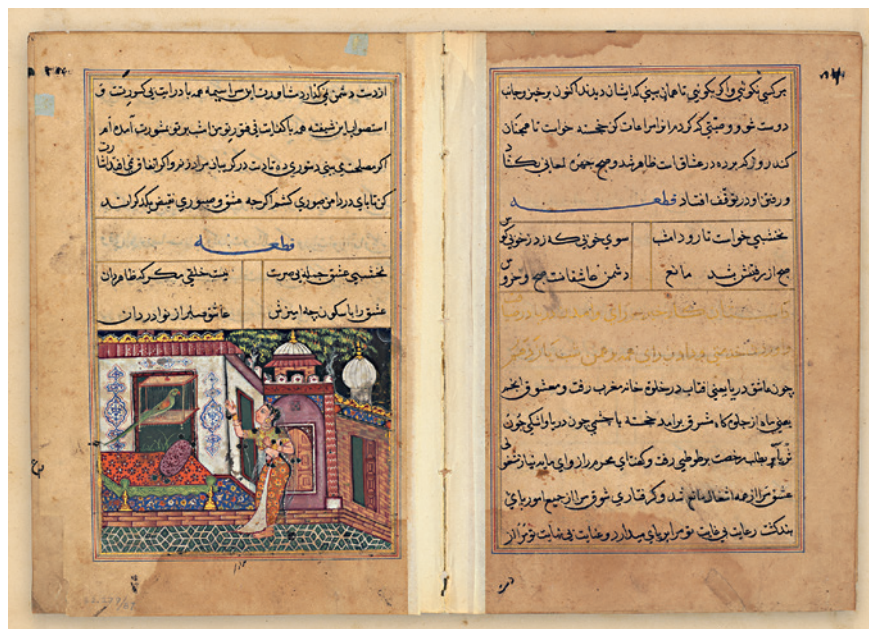 برکسی نگوئی واکر بگوئی تا همان بینی که ایشان دیدند اکنون برخیز وجانب
دوست شو و وصیتی که کردم از وا مراعات کن خجسته خواست تا همچنان
کند روز که پرده در عشاق است ظاهر شد و صبح چهره لمعانی بکشاد
و رفتن او در توقف افتاد قطعه
نخشبی خواست تا رود امشب سوی خوبی که زد ز خوبی کوس
صبح از رفتنش شد مانع دشمن عاشقانست صبح و خروس
چون عاشق دریا یعنی افتاب در خلوت خانه مغرب رفت و معشوق انجم
یعنی ماه از جلوه کاه مشرق برامد خجسته با چشمی چون دریا و اشکی چون
ثریا بطلب رخصت بر طوطی رفت و کفت ای محرم راز وای مایه نیاز
عشق مرا از همه اشغال مانع شد و کرفتاری شوق مرا از جمیع امور پای
بند کشت رعایت بی غایت تو مرا بر پای میدارد و عنایت بی نهایت تو مرا از
ازدست دشمن نمی کذارد مشاورت این سراسیمه همه با درایت بی کسور تست و
استصواب این شیفته همه با کفایت بی فتور تو من امشب بر تو بمشورت آمده ام
اکر مصلحت می بینی دستوری ده تا دست در کریبان مراد زنم و اکر اتفاق نمی افتد اشارت
کن تا پای در دامن صبوری کشم اکرچه عشق و صبوری نقیض یکدکراند
قطعه
نخشبی عشق جمله بی صبریست نیست خلقی مکر که ظاهر دان
عشق را با سکون چه امیزش عاشق صابر از نوادر دان